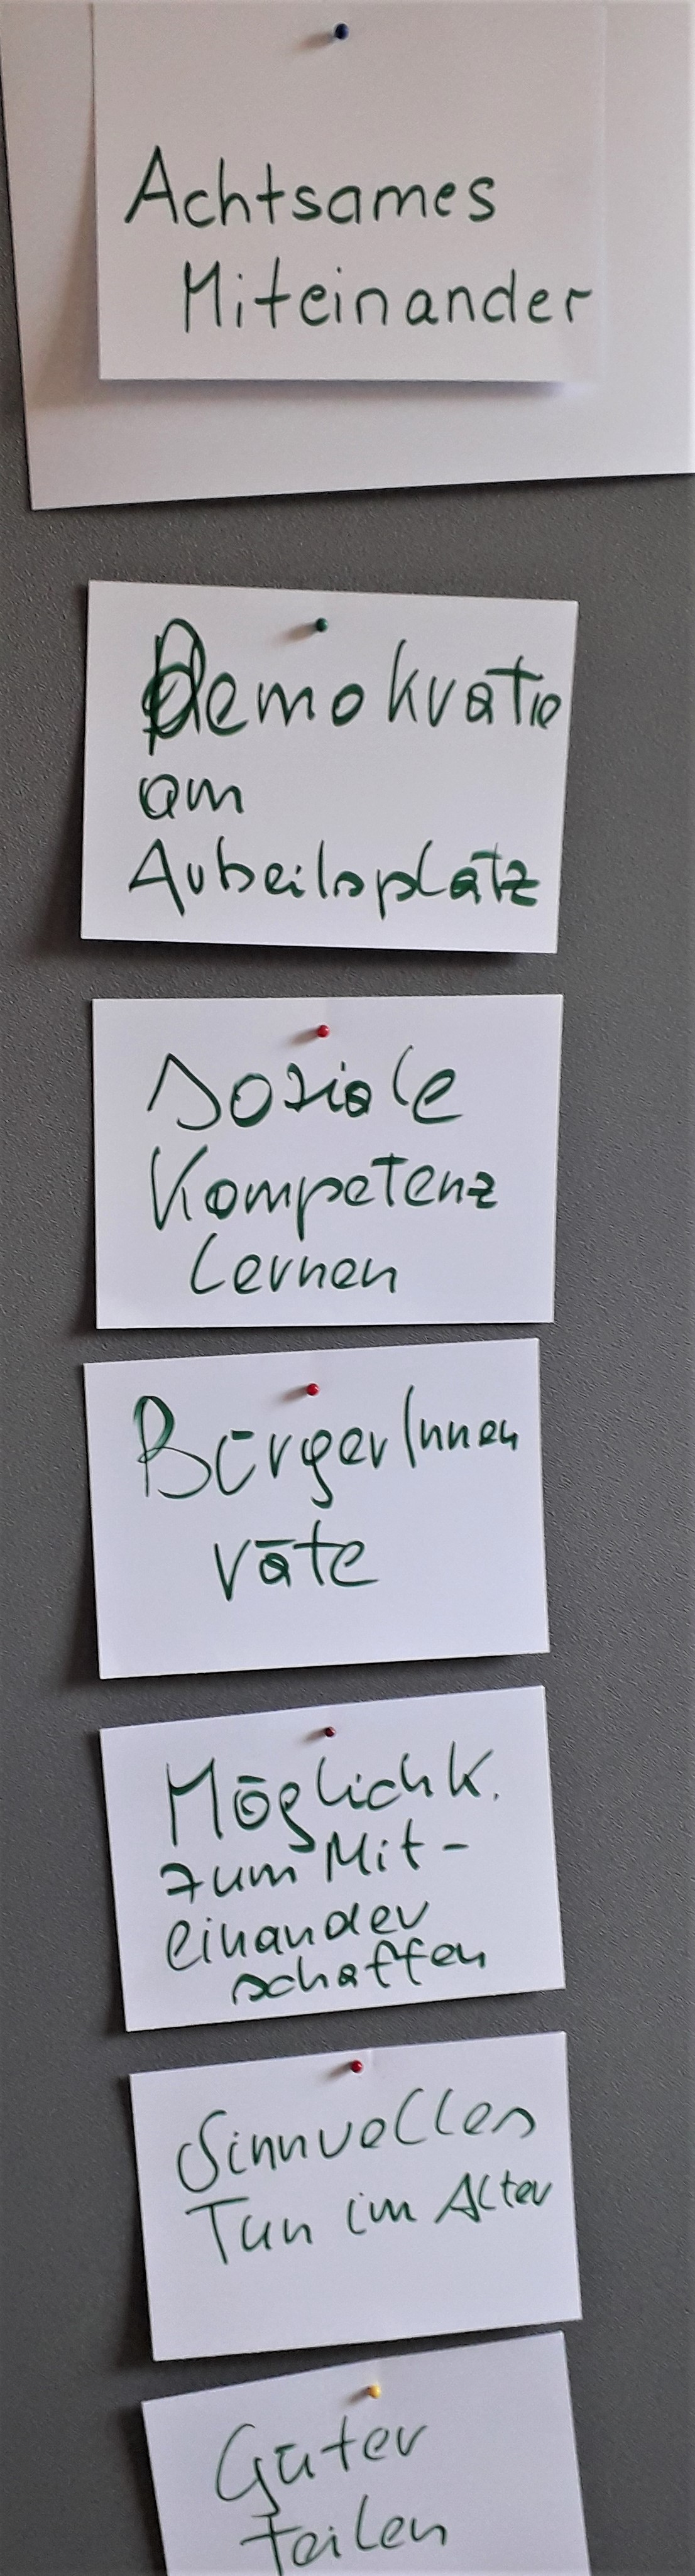 Achtsames
Miteinander
Demokratie
am
Arbeitsplatz
Soziale
Kompetenz
lernen
BürgerInnen
räte
Möglichk.
zum Mit-
einander
schaffen
Sinnvolles
Tun im Alter
Güter
teilen